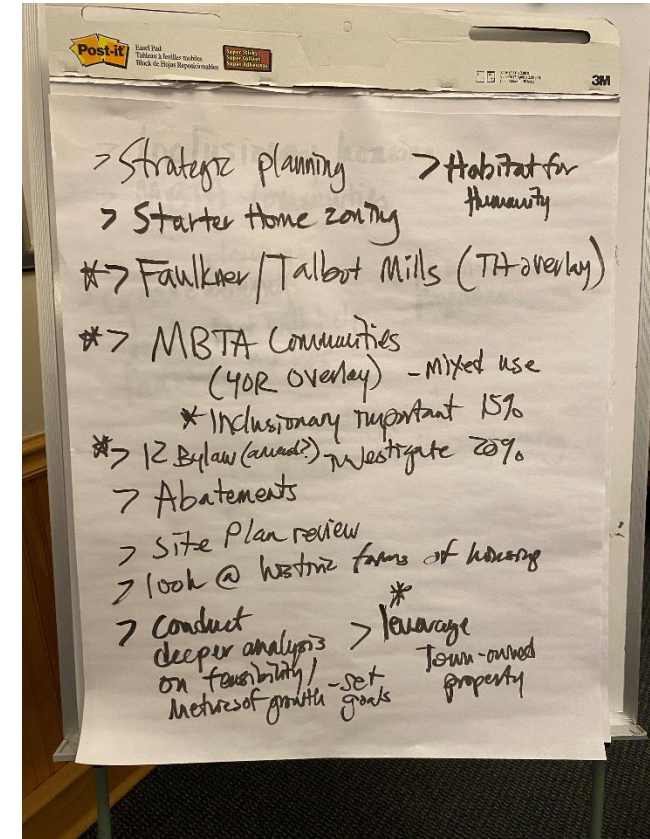 Post-it
Easel Pad
Tableau à feuilles mobiles
Block de Hojas Reposicionables
Super Sticky
Super Collant
Super Adhesivas
3M
> Strategic planning
> Habitat for
Humanity
> Starter Home zoning
*> Faulkner/Talbot Mills (TH overlay)
*> MBTA Communities
(40R overlay) - Mixed use
* Inclusionary important 15%
*> IZ Bylaw (amend?) investigate 20%
> Abatements
> Site Plan review
> look @ historic forms of housing
> Conduct
deeper analysis
on feasibility/
Metrics of growth - set
goals
*
> leverage
Town-owned
property